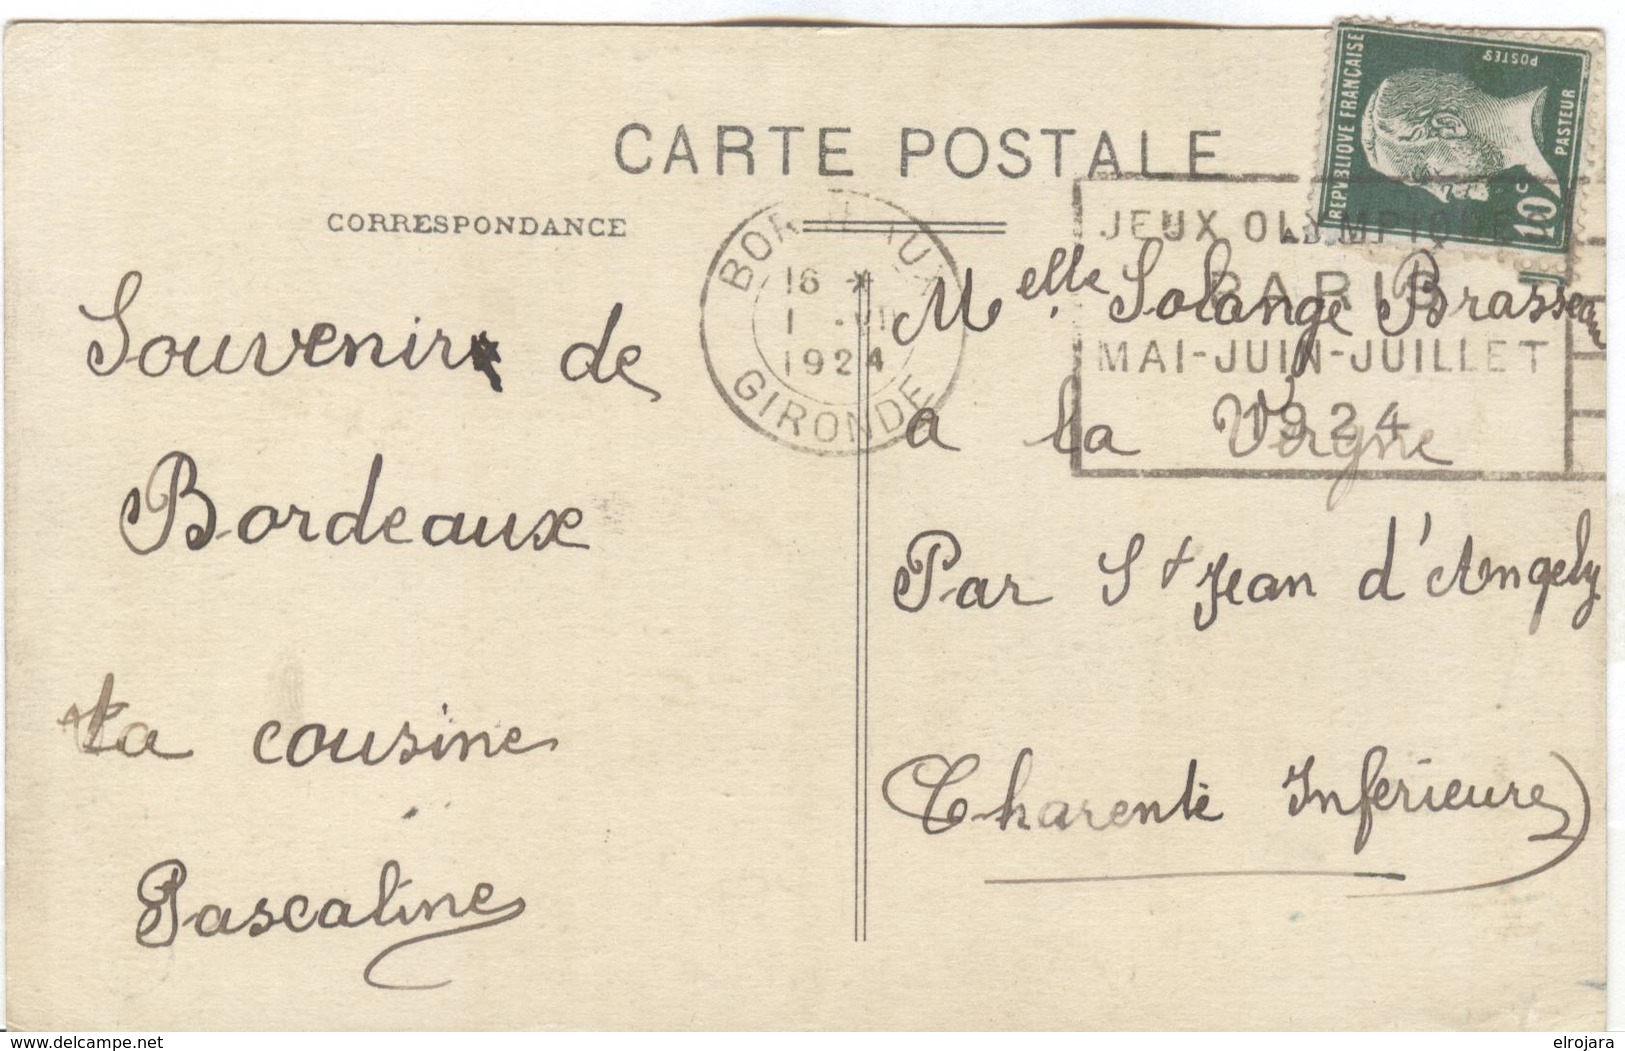 CARTE POSTALE
CORRESPONDANCE
REPVBLIQVE FRANÇAISE
POSTES
PASTEUR
10c
BORDEAUX
16 *
1 VII
1924
GIRONDE
JEUX OLYMPIQUES
PARIS
MAI-JUIN-JUILLET
1924
Souvenir de
Bordeaux
ta cousine
Pascaline
Melle. Solange Brasseau
a la Vergne
Par St Jean d'Angely
Charente Inferieure
delcampe.net
elrojara